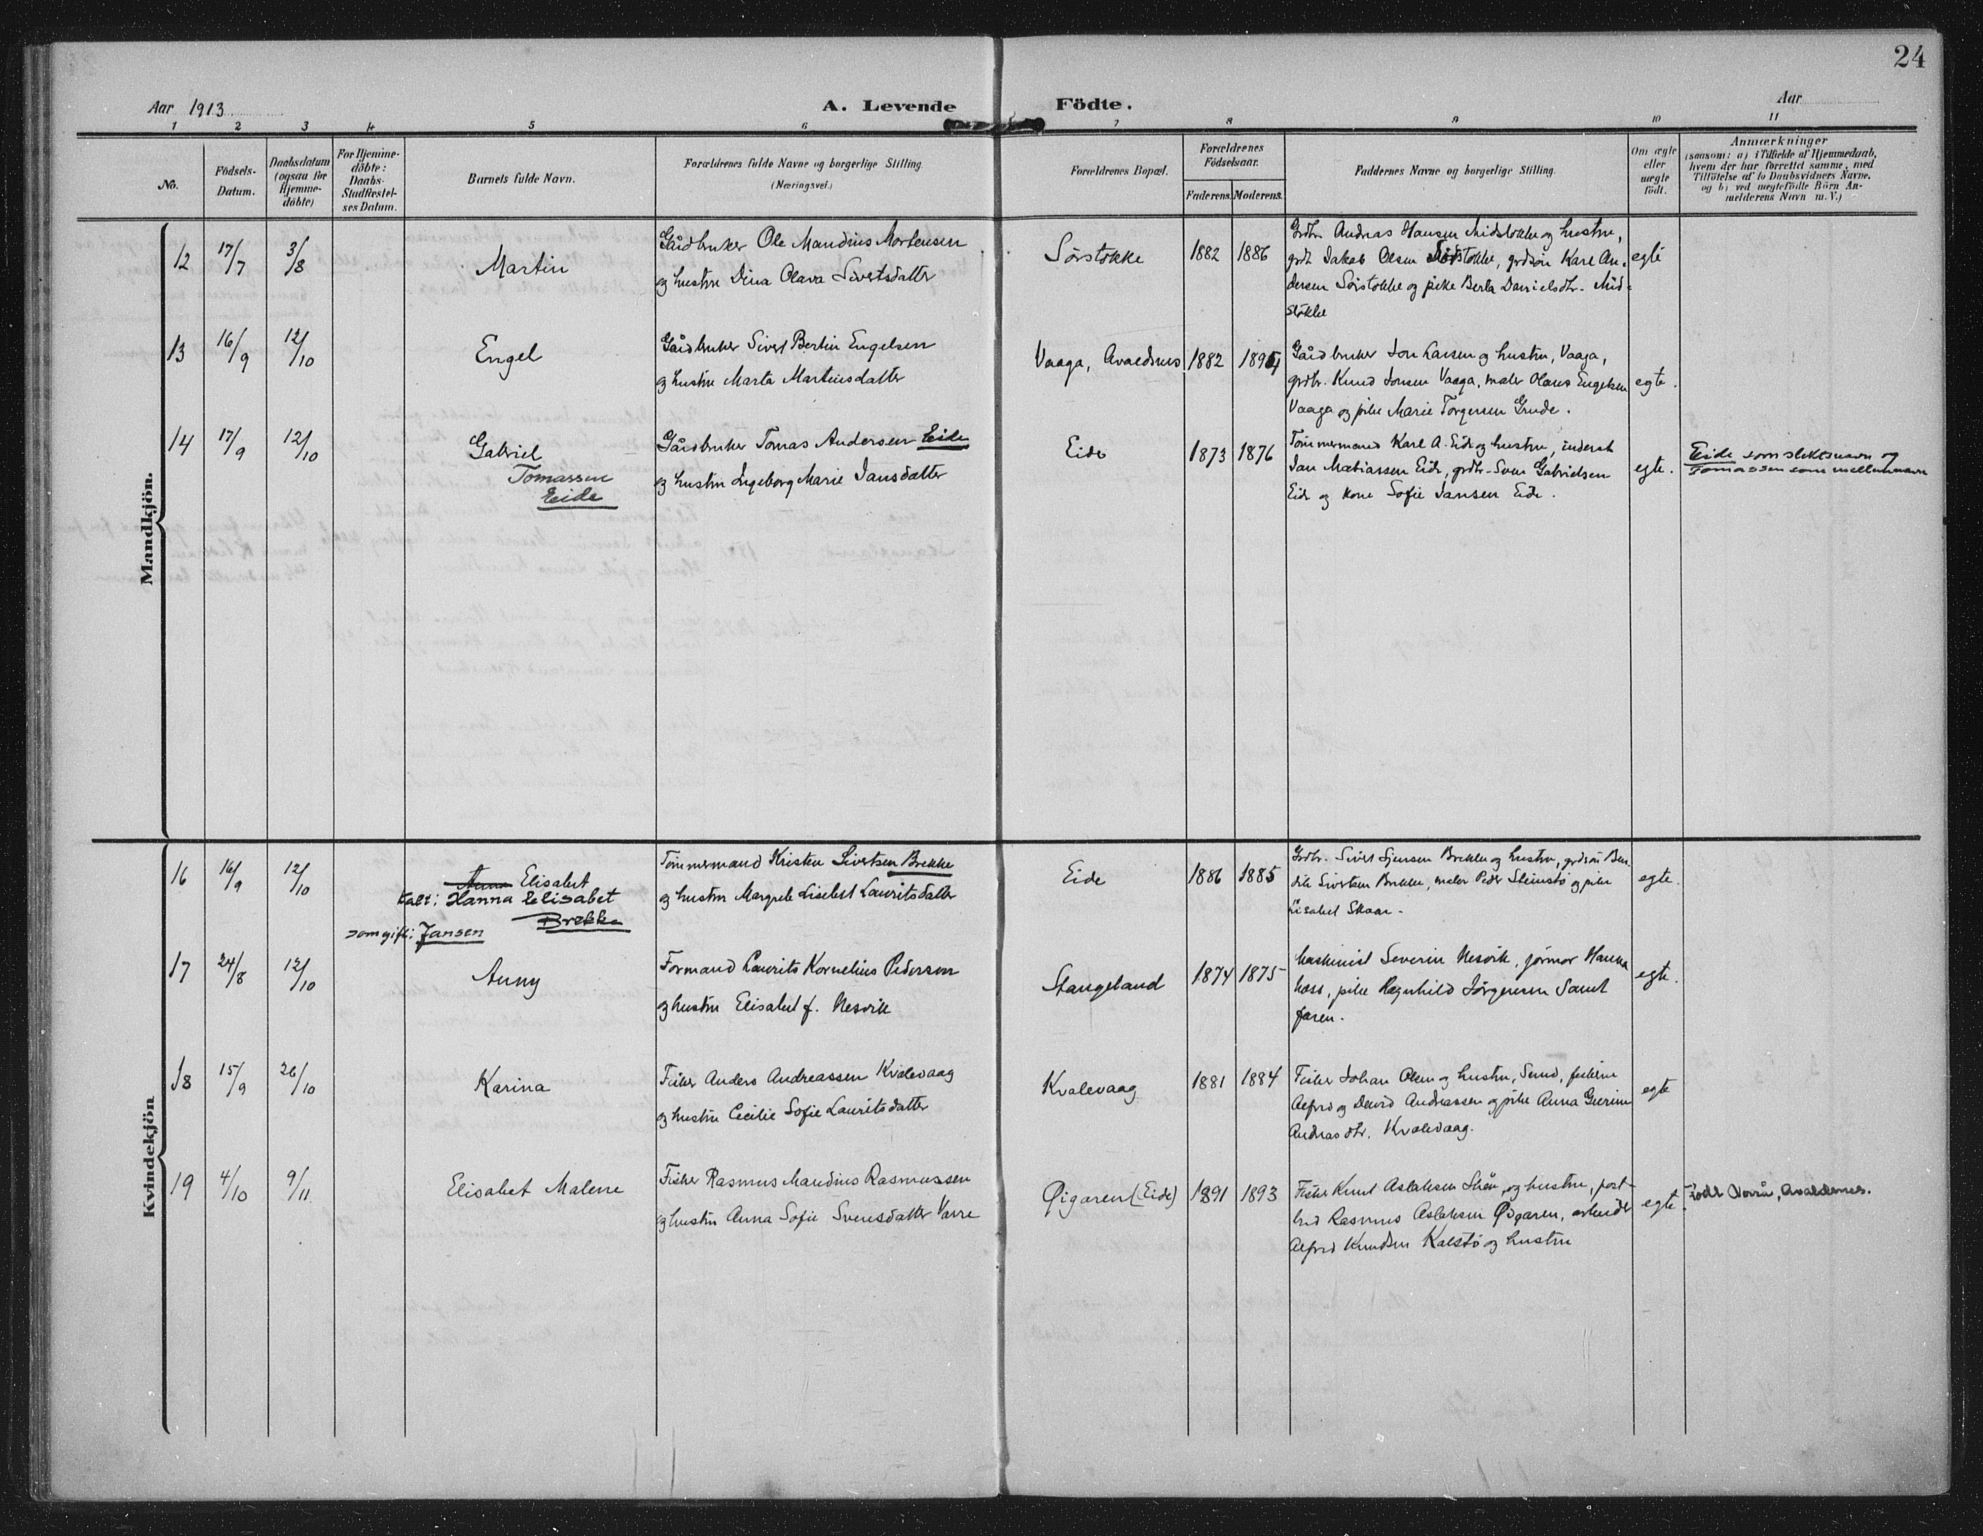 24
Aar 1913
A. Levende Födte.
Aar
1 2 3 4 5 6 7 8 9 10 11
No.
Födsels-
Datum.
Daabsdatum
(ogsaa for
Hjemme-
döbte)
For Hjemme-
döbte:
Daabs-
Stadfestel-
ses Datum.
Barnets fulde Navn.
Forældrenes fulde Navne og borgerlige Stilling.
(Næringsvei.)
Forældrenes Bopæl.
Forældrenes
Födselsaar.
Faderens. Moderens.
Faddernes Navne og borgerlige Stilling.
Om ægte
eller
uægte
födt.
Anmærkninger
(saasom: a) i Tilfælde af Hjemmedaab,
hvem der har forrettet samme, med
Tilföielse af to Daabsvidners Navne,
og b) ved uægtefödte Börn An-
melderens Navn m. V.)
Mandkjön.
12 17/7 3/8 Martin
Gårdbruker Ole Mandius Mortensen
og hustru Dina Olava Sivertsdatter
Sørstokke 1882 1886
Grdbr. Andreas Hansen Midstokke og hustru,
grdbr Jakob Olsen Sørstokke, grdsøn Karl An-
dersen Sørstokke og pike Berta Danielsdtr. Mid-
stokke
egte
13 16/9 12/10 Engel
Gårdbruker Sivert Bertin Engelsen
og hustru Marta Martinsdatter
Vaaga, Avaldsnes 1882
Gårdbruker Jon Larsen og hustru, Vaaga,
grdbr. Knud Jonsen Vaaga, maler Olaus Engelsen
Vaaga og pike Marie Torgersen Grude.
egte.
14 17/9 12/10 Gabriel
Tomassen
Eide
Gårdbruker Tomas Andersen Eide
og hustru Ingeborg Marie Jansdatter
Eide 1873 1876
Tømmermand Karl A. Eide og hustru, inderst
Jan Matiassen Eide, grdbr. Sven Gabrielsen
Eide og kone Sofie Jansen Eide.
egte.
Eide som slektsnavn og
Tomassen som mellemnavn
Kvindekjön
16 16/9 12/10 Anna Elisabet
kalt: Hanna Elisabet
Brekke
som gift: Jansen
Tømmermand Kristen Sivertsen Brekke
og hustru Margrete Lisebet Lauritsdatter
Eide 1886 1885
Grdbr. Sivert Sjursen Brekke og hustru, grdsøn Ben-
dik Sivertsen Brekke, maler Peder Steinstø og pike
Lisabet Skaar.
egte.
17 24/8 12/10 Anny
Formand Laurits Kornelius Pedersen
og hustru Elisabet f. Nesvik
Stangeland 1874 1875
Maskinist Severin Nesvik, jormor Hanna
Moss, pike Ragnhild Jørgensen samt
faren.
egte.
18 15/9 26/10 Karina
Fisker Anders Andreassen Kvalevaag
og hustru Cecilie Sofie Lauritsdatter
Kvalevaag 1881 1884
Fisker Johan Olsen og hustru, Sund, fiskerne
Alfred og David Andreassen og pike Anna Gurine
Andreasdtr. Kvalevaag.
egte
19 4/10 9/11 Elisabet Malene
Fisker Rasmus Mandius Rasmussen
og hustru Anna Sofie Svensdatter Varre
Øigaren (Eide) 1891 1893
Fisker Knut Aslaksen og hustru, post-
bud Rasmus Aslaksen Øigaren, arbeider
Alfred Knudsen Kalstø og hustru
egte.
født Avaldsnes.